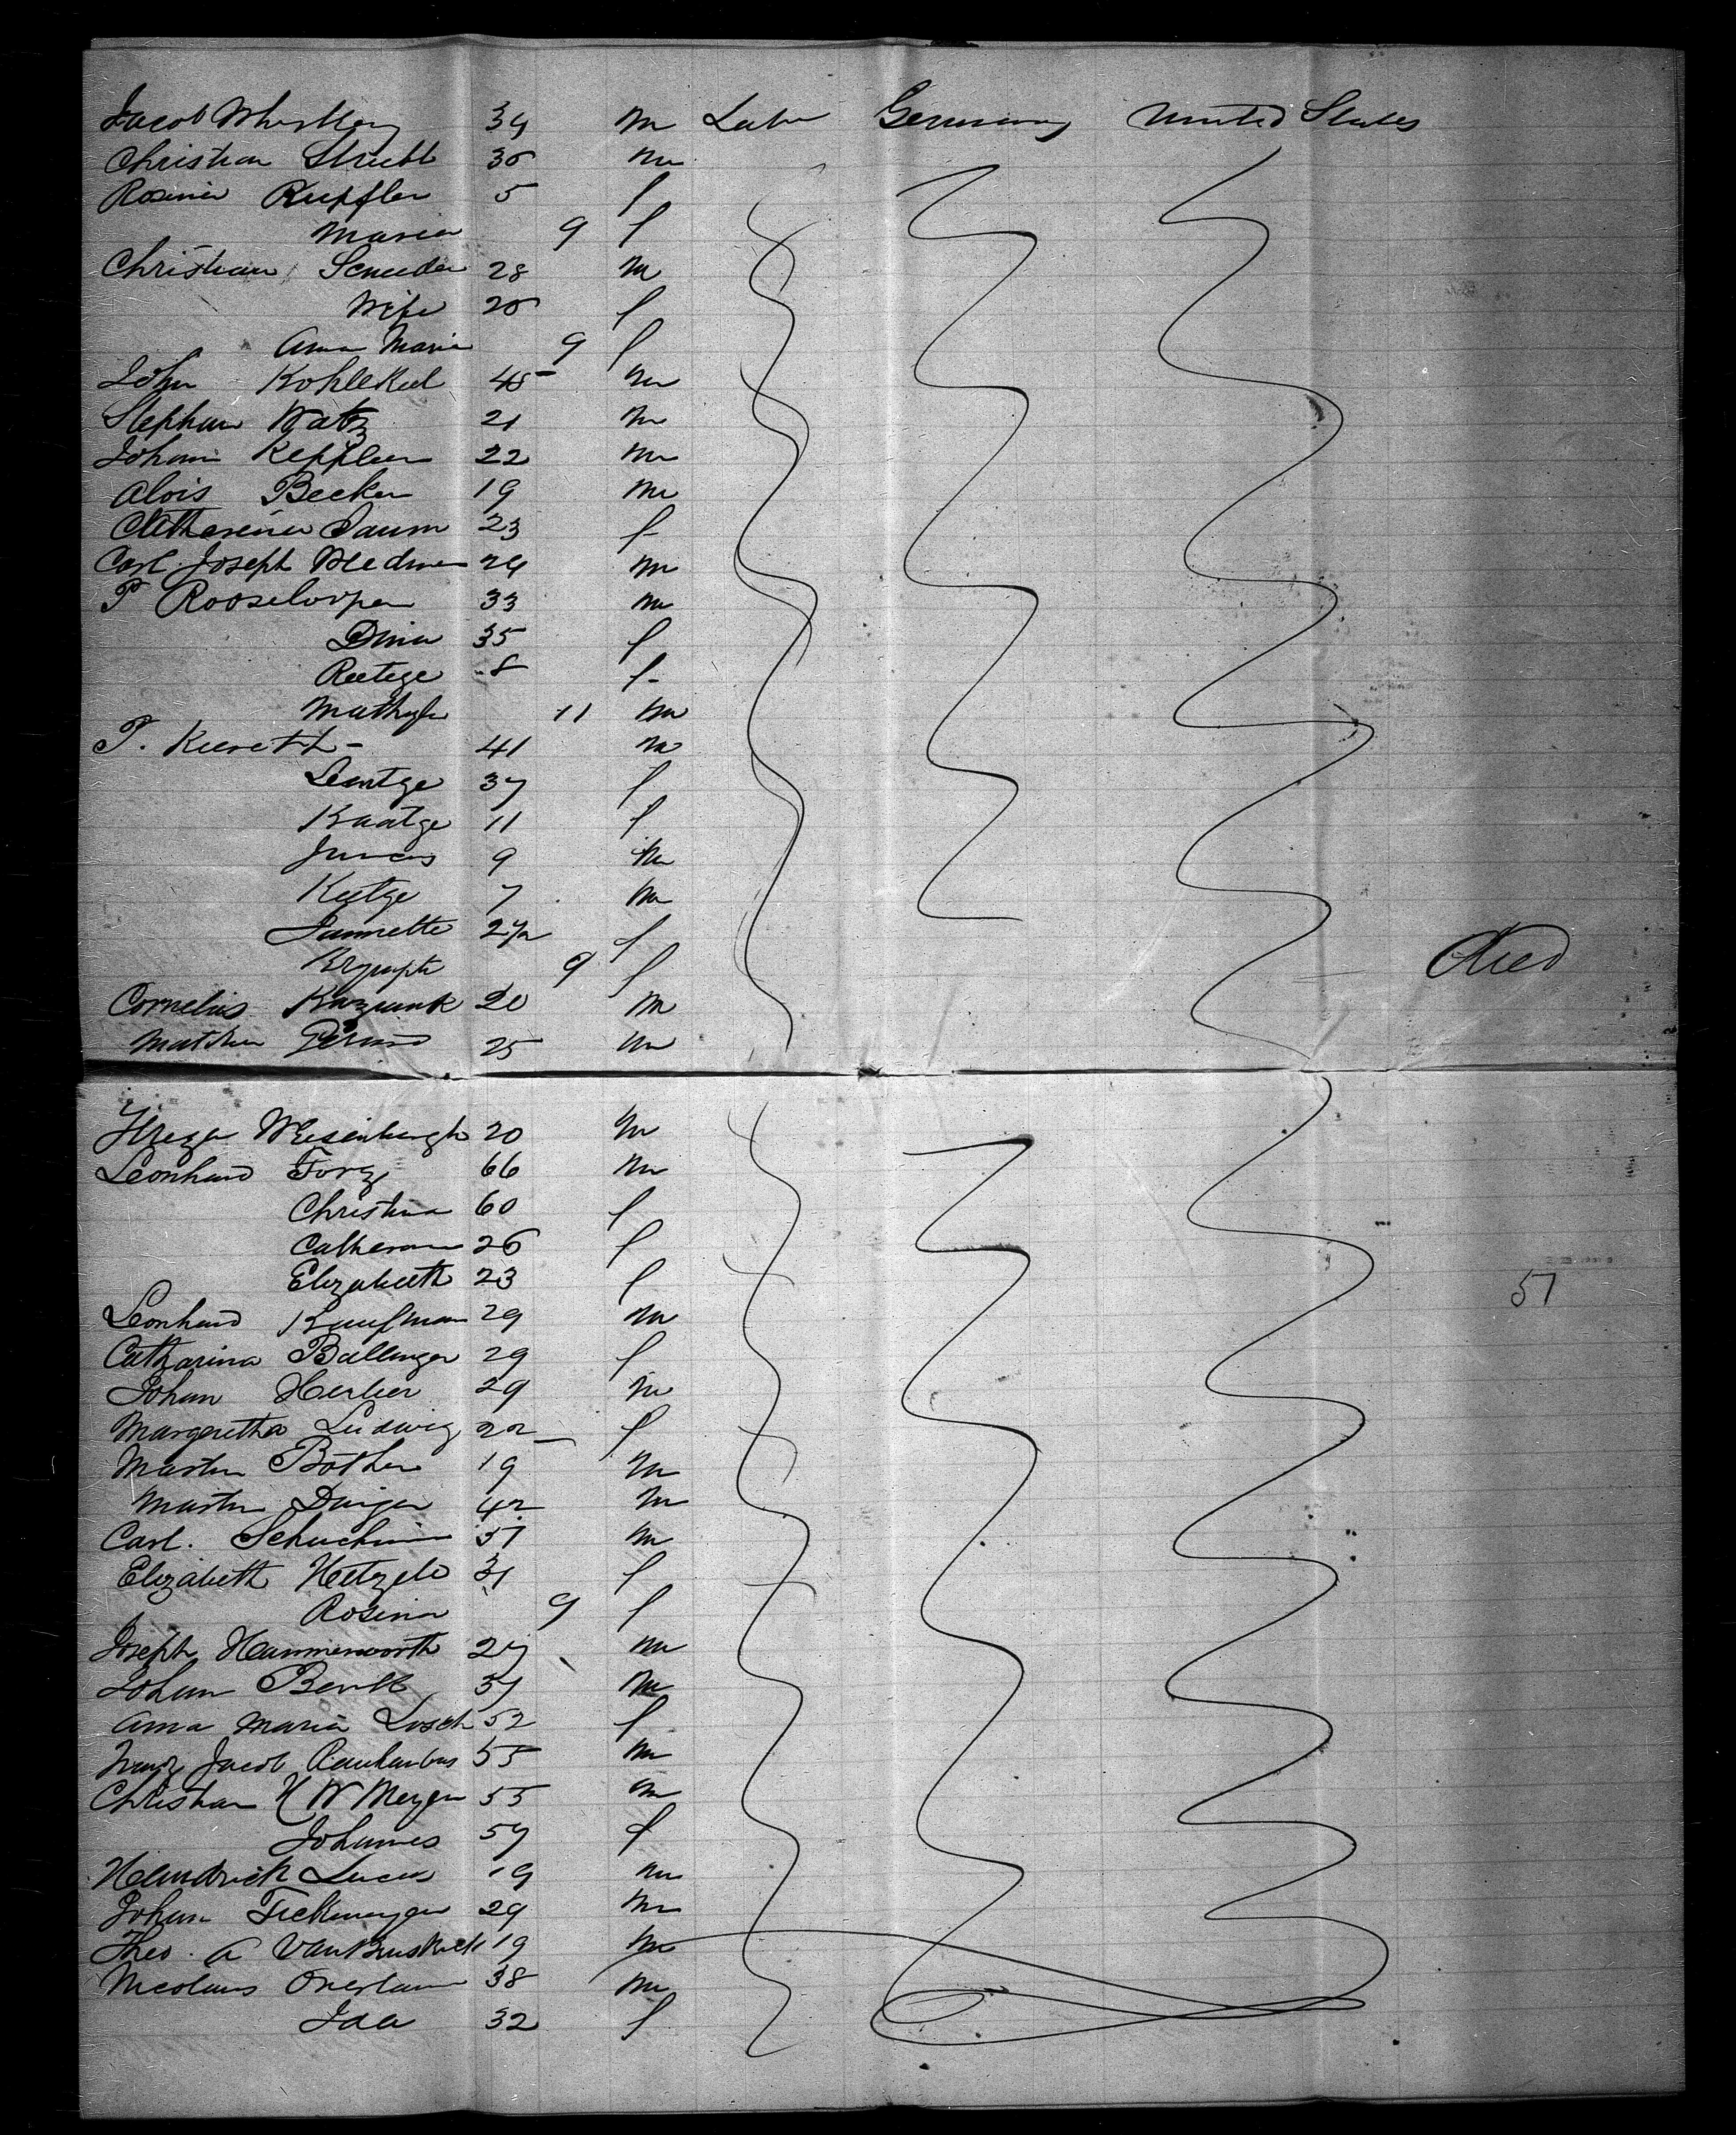 Jacob 34 m Labor Germany United States
Christian Strubl 30 m
Rosina Kupfler 5 f
Maria 9 f
Christian Scneeder 28 m
Wife 20 f
Anna Maria 9 f
John Kohlekul 45 m
Stephan Watz 21 m
Johann Keppler 22 m
Alois Becker 19 m
Catherina Daum 23 f
Carl Joseph 24 m
P Rooselorpen 33 m
Dina 35 f
Reetege 8 f
Mathyle 11 m
P. Kureth 41 m
Leentge 37 f
Kaatge 11 f
9 m
Keetge 7 m
Jannette 2 1/2 f
9 f Died
Cornelius 20 m
Mathew 25 m
20 m
Leonhard Torz 66 m
Christina 60 f
Catherina 26 f
Elizabeth 23 f
57
Leonhard Kaufman 29 m
Catharina Ballinger 29 f
Johan Herber 29 m
Margretha Ludwig 22 f
Martin Bother 19 m
Martin Daiger 42 m
Carl. 51 m
Elizabeth Hetzele 31 f
Rosina 9 f
Joseph Hammerworth 27 m
Johan 37 m
Anna Maria Losch 52 f
Jacob 55 m
Christian H W Meyer 55 m
Johannes 57 f
Hendrick Lucas 19 m
Johan Fickmeyer 29 m
Theo. A VanBuskirk 19 m
Nicolaus 38 m
Ida 32 f